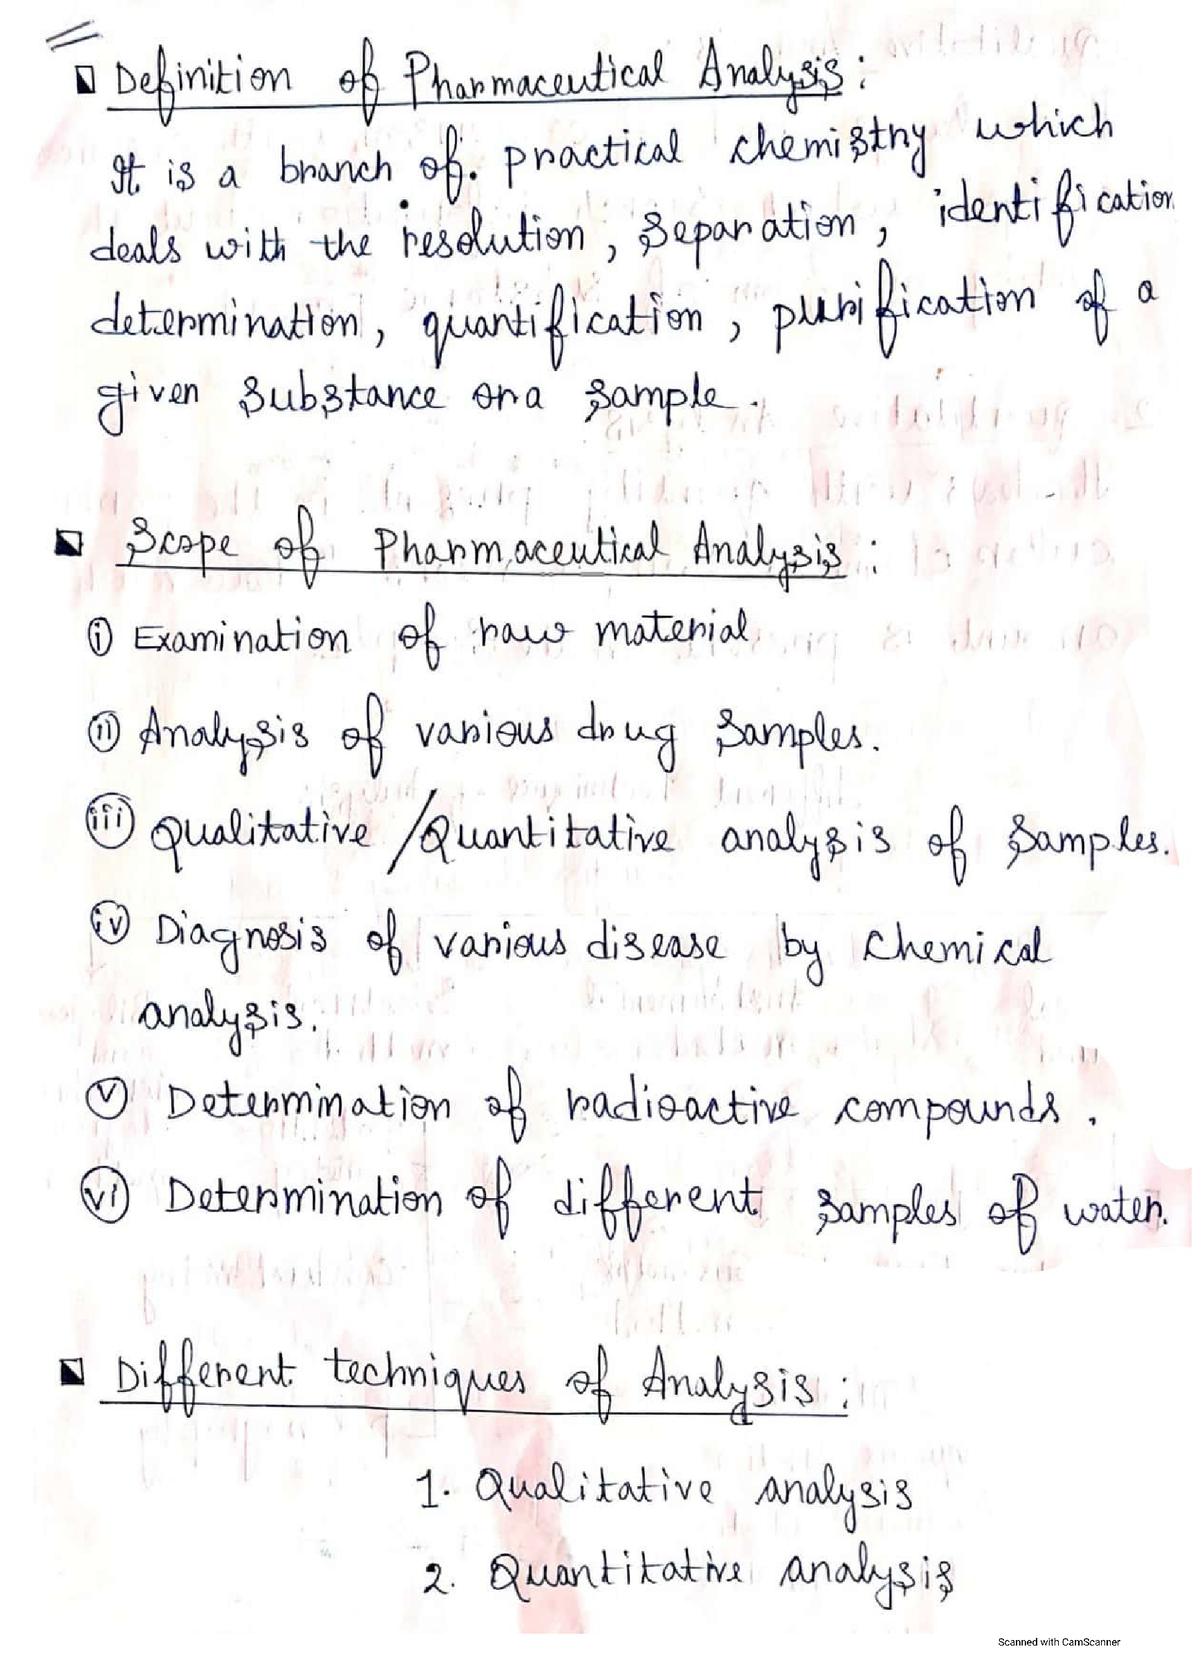 Definition of Pharmaceutical Analysis :
It is a branch of. practical chemistry which
deals with the resolution, separation, identification
determination, quantification, purification of a
given substance or a sample.
Scope of Pharmaceutical Analysis :
i Examination of raw material
ii Analysis of various drug samples.
iii Qualitative / Quantitative analysis of samples.
iv Diagnosis of various disease by chemical
analysis.
v Determination of radioactive compounds.
vi Determination of different samples of water.
Different techniques of Analysis :
1. Qualitative analysis
2. Quantitative analysis
Scanned with CamScanner